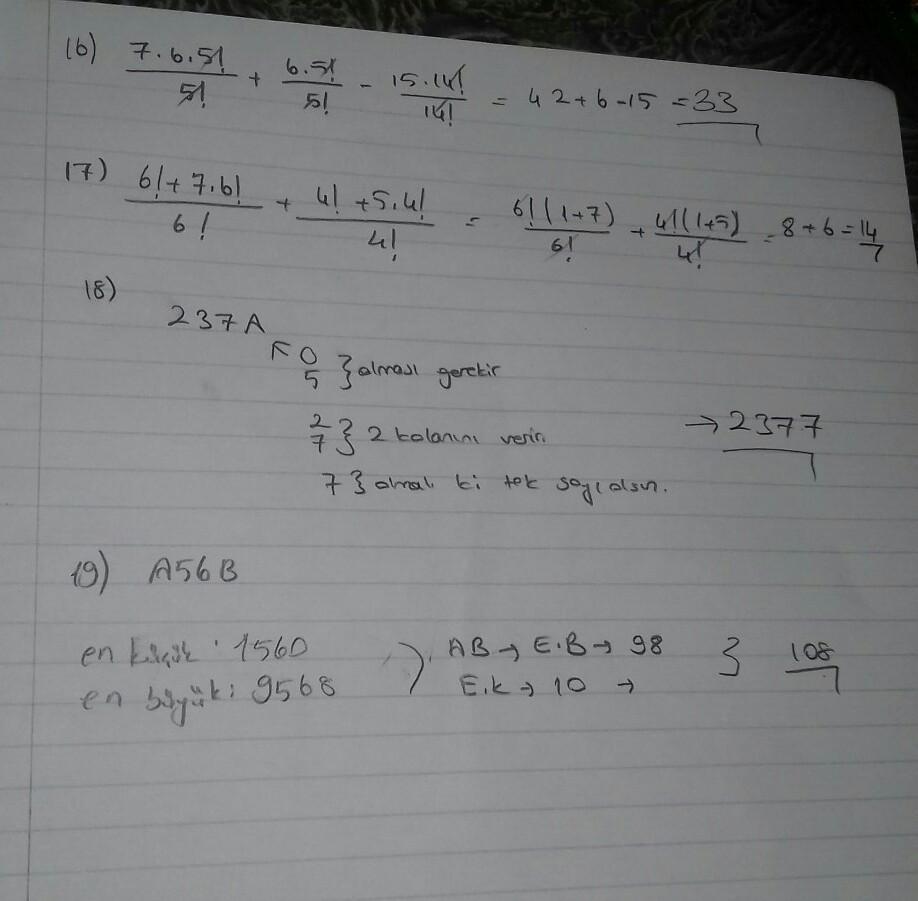 16) 7.6.5!/5! + 6.5!/5! - 15.14!/14! = 42+6-15 = 33
17) 6!+7.6!/6! + 4!+5.4!/4! = 6!(1+7)/6! + 4!(1+5)/4! = 8+6 = 14
18)
237A
0
5 } olması gerekir
2
7 } 2 kalanını verir. → 2377
7 } olmalı ki tek sayı olsun.
19) A56B
en küçük : 1560 AB → E.B → 98 } 108
en büyük : 9568 E.k → 10 →